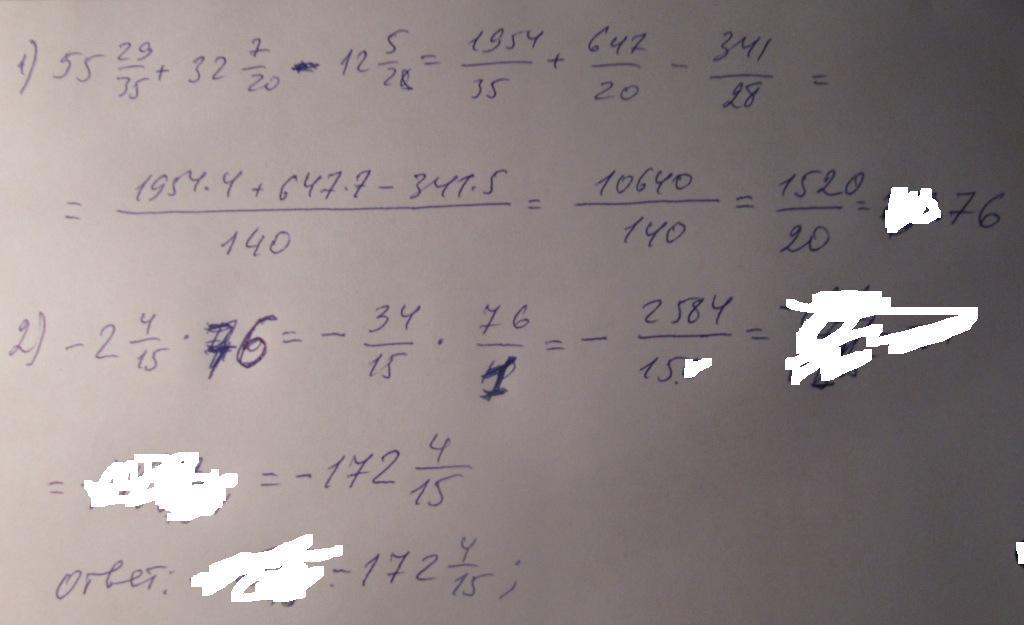 1) 55 29/35 + 32 7/20 - 12 5/28 = 1954/35 + 647/20 - 341/28 =
= 1954·4 + 647·7 - 341·5/140 = 10640/140 = 1520/20 = 76
2) -2 4/15 · 76 = - 34/15 · 76/1 = - 2584/15 =
= = -172 4/15
ответ: -172 4/15;